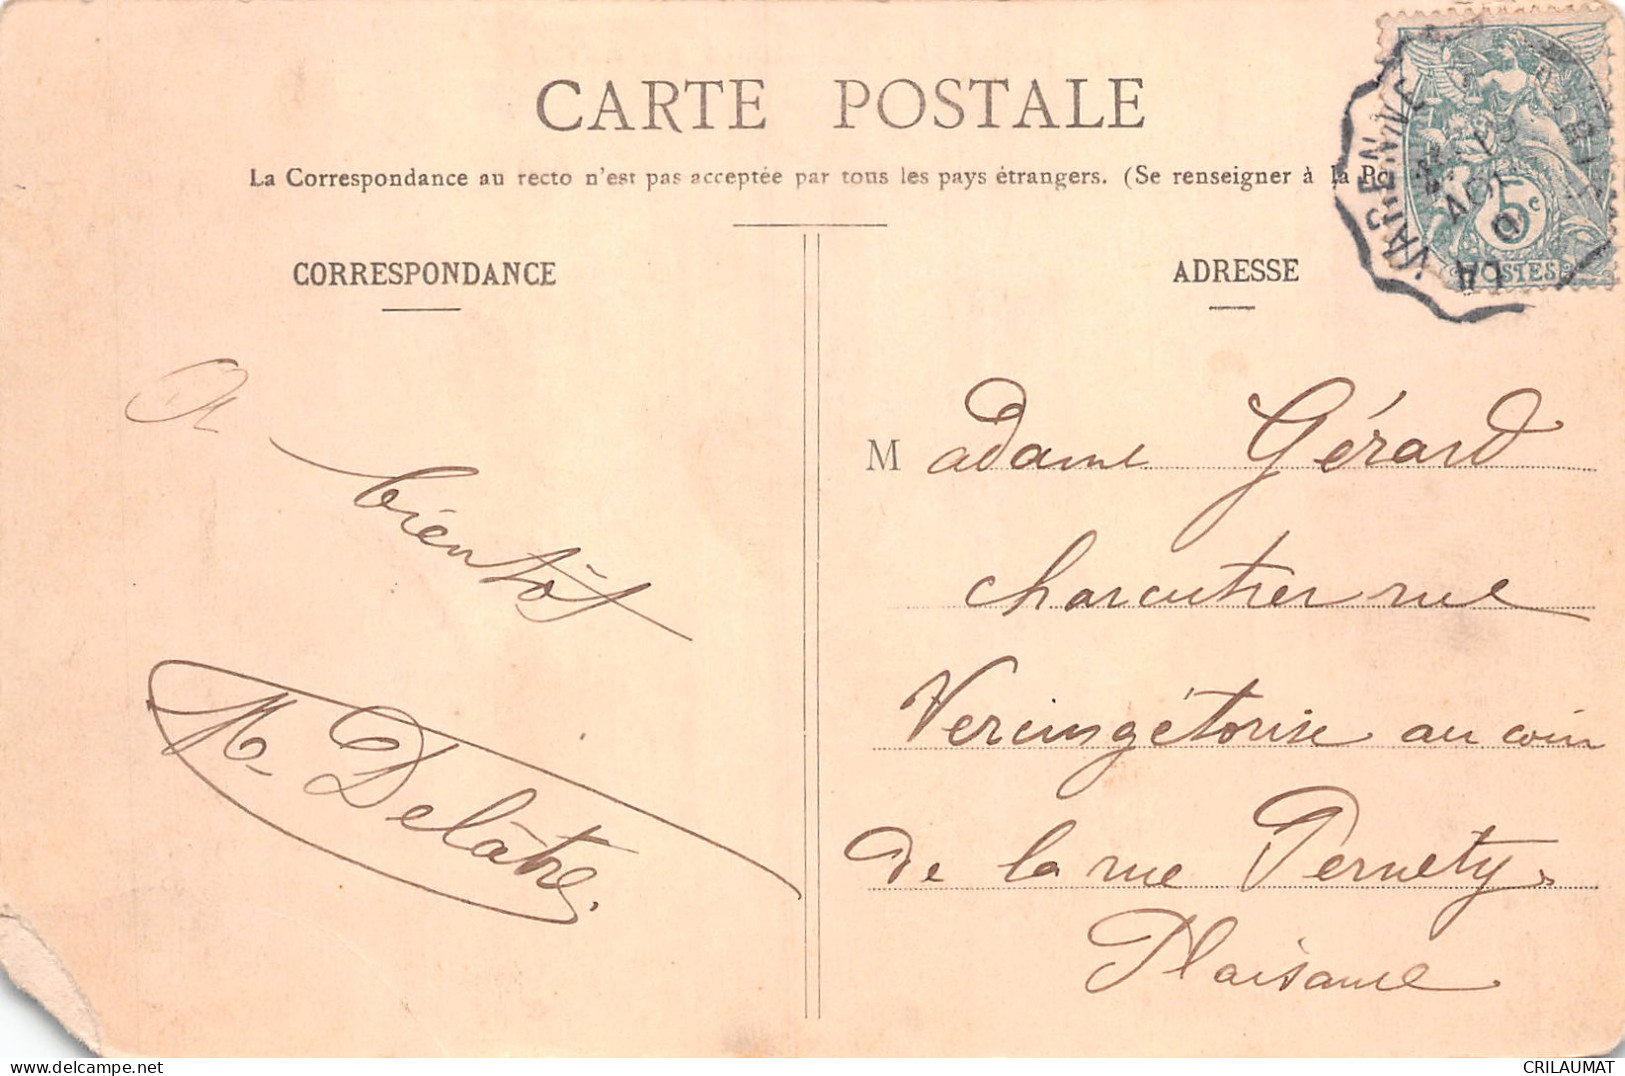 CARTE POSTALE
La Correspondance au recto n'est pas acceptée par tous les pays étrangers. (Se renseigner à la Po
CORRESPONDANCE
ADRESSE
LA VARENNE
5c
POSTES
A
bientôt
M. Delâtre.
Madame Gérard
charcutier rue
Vercingétorix au coin
de la rue Pernety
Plaisance
CRILAUMAT